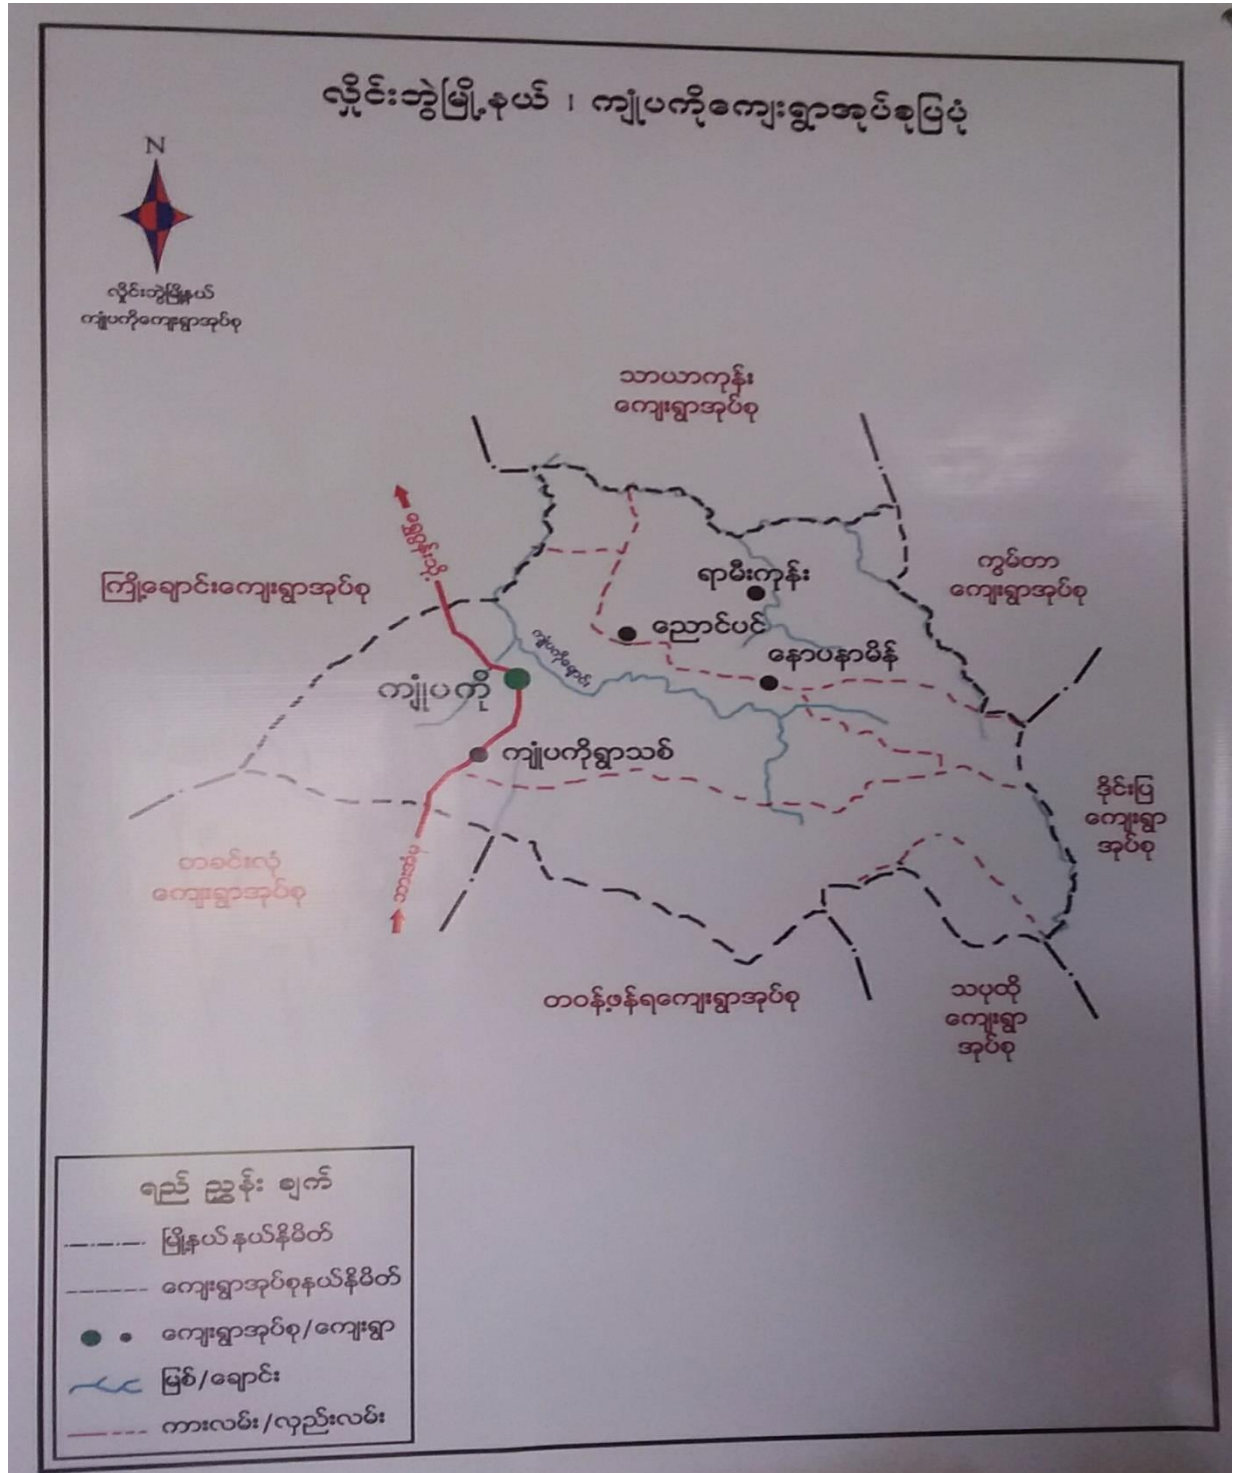 လှိုင်းဘွဲမြို့နယ် ၊ ကျုံပကိုကျေးရွာအုပ်စုပြပုံ
N
လှိုင်းဘွဲမြို့နယ်
ကျုံပကိုကျေးရွာအုပ်စု
သာယာကုန်း
ကျေးရွာအုပ်စု
ရွှေဝန်းသို့
ကြို့ချောင်းကျေးရွာအုပ်စု
ကွမ်တာ
ကျေးရွာအုပ်စု
ရာမီးကုန်း
ညောင်ပင်
နောပနာမိန်
ကျုံပကိုချောင်း
ကျုံပကို
ကျုံပကိုရွာသစ်
ဒိုင်းပြ
ကျေးရွာ
အုပ်စု
တခင်းလုံ
ကျေးရွာအုပ်စု
ဘားအံမှ
တဝန့်ဖန်ရကျေးရွာအုပ်စု
သပုထို
ကျေးရွာ
အုပ်စု
ရည် ညွှန်း ချက်
မြို့နယ်နယ်နိမိတ်
ကျေးရွာအုပ်စုနယ်နိမိတ်
ကျေးရွာအုပ်စု/ကျေးရွာ
မြစ်/ချောင်း
ကားလမ်း/လှည်းလမ်း